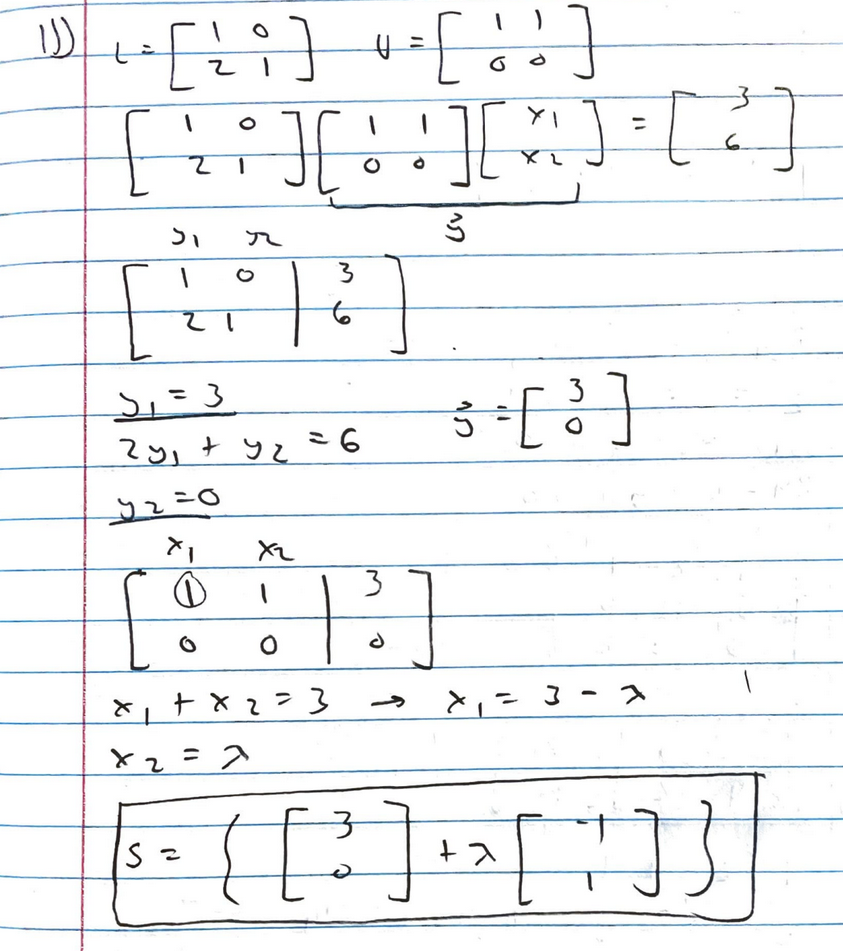 11) L = [ 1 0 ; 2 1 ] U = [ 1 1 ; 0 0 ]
[ 1 0 ; 2 1 ] [ 1 1 ; 0 0 ] [ x1 ; x2 ] = [ 3 ; 6 ]
y⃗
y1 y2
[ 1 0 | 3 ; 2 1 | 6 ]
y1 = 3
2y1 + y2 = 6 y⃗ = [ 3 ; 0 ]
y2 = 0
x1 x2
[ 1 1 | 3 ; 0 0 | 0 ]
x1 + x2 = 3 → x1 = 3 - λ
x2 = λ
S = { [ 3 ; 0 ] + λ [ -1 ; 1 ] }